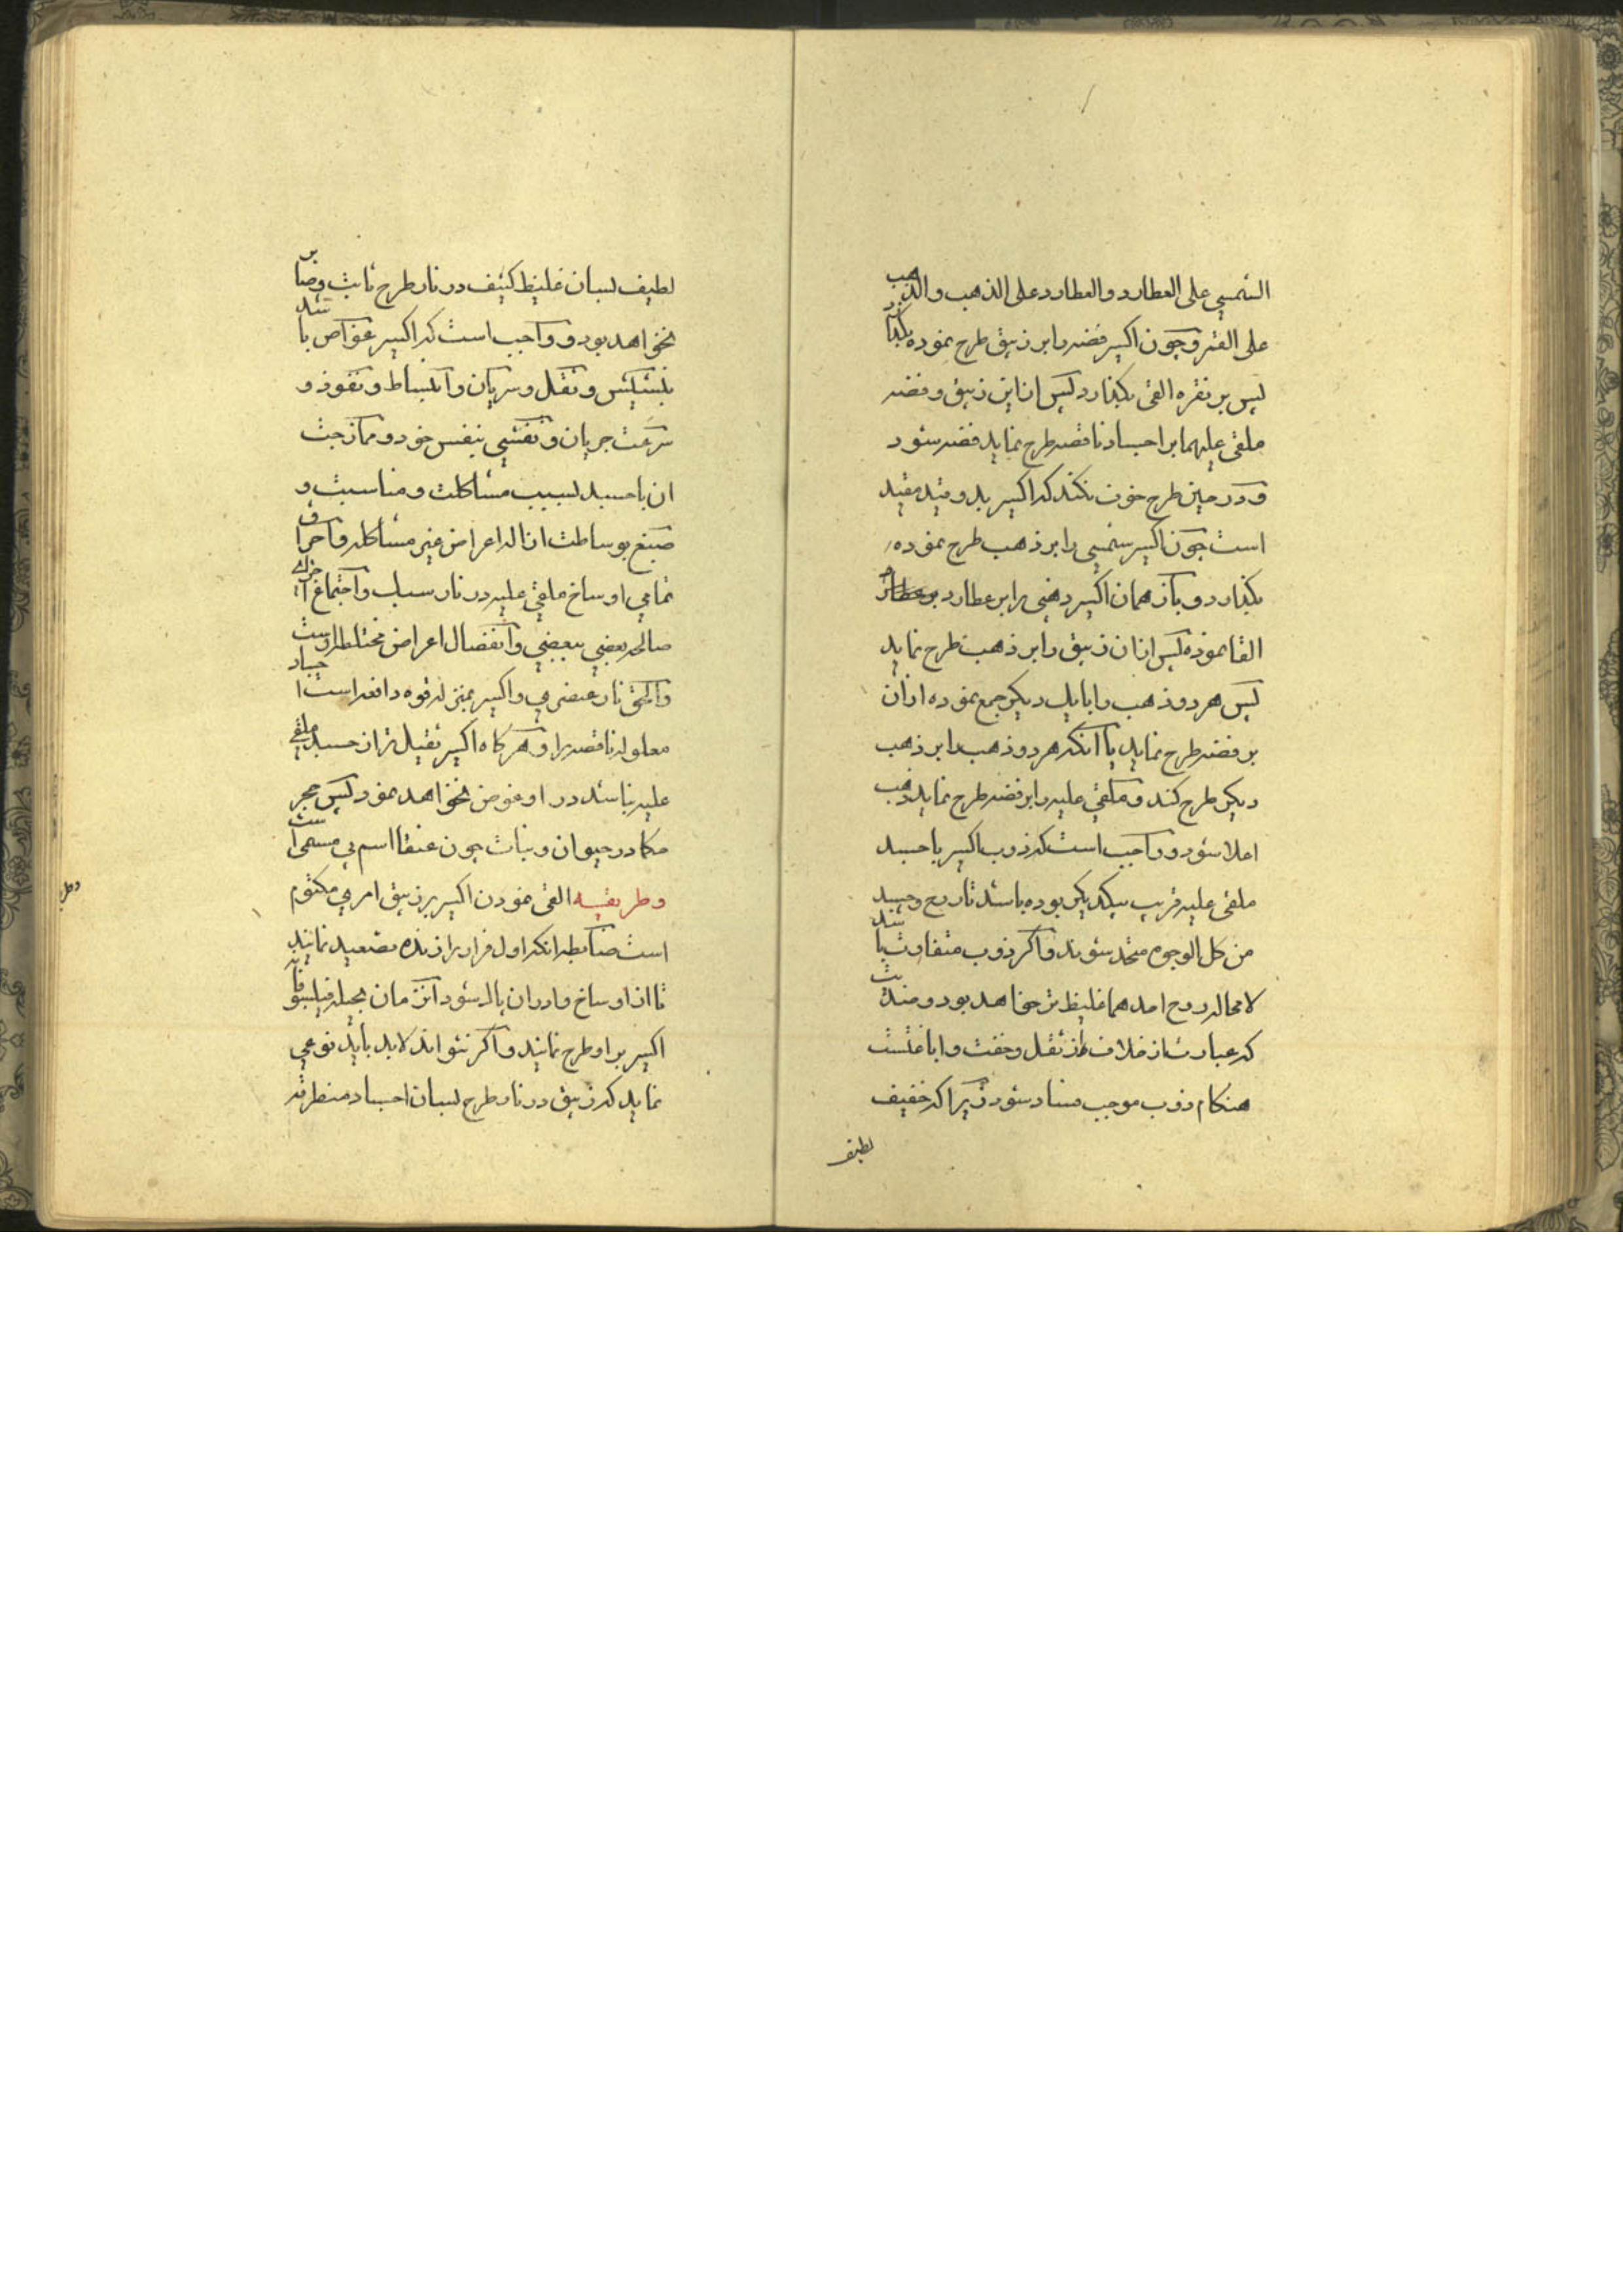 الشمسی علی العطارد والعطارد علی الذهب والذهب
علی القمر و چون اکسیر فضه را بر زیبق طرح نموده بگذارد
پس بر نقره القی بگذارد پس از این زیبق و فضه
ملقی علیهما بر اجساد ناقصه طرح نماید فضه شود
و در حین طرح خوف نکند که اکسیر بد و قید مقید
است چون اکسیر شمسی را بر ذهب طرح نموده
بگذارد و باز همان اکسیر ذهبی را بر عطارد
القا نموده پس از ان زیبق را بر ذهب طرح نماید
پس هر دو ذهب را با یک دیگر جمع نموده از ان
بر فضه طرح نماید یا آنکه هر دو ذهب را بر ذهب
دیگر طرح کند و ملقی علیه را بر فضه طرح نماید ذهب
اعلا شود و واجب است که ذوب اکسیر با جسد
ملقی علیه قریب بیکدیگر بوده باشد تا روح و جسد
من کل الوجوه متحد شوند و اگر ذوب متفاوت باشد
لا محاله روح احدهما غلیظ تر خواهد بود و ضدیت
که عبارت از خلاف از ثقل و خفت و اباغتست
هنگام ذوب موجب فساد شود زیرا که خفیف
لطیف
لطیف بسان غلیظ کثیف در نار طرح ثابت و صابر
نخواهد بود و واجب است که اکسیر غواص باشد
بتشیئش و ثقل و سریان و انبساط و نفوذ و
سرعت جریان و تفشی بنفس خود و ممازجت
ان با جسد بسبب مشاکلت و مناسبت و
صبغ بوساطت ازاله اعراض غیر مشاکله و احراق
تمامی اوساخ ملقی علیه در نار سبک و اجتماع اجزای
صالحه بعضی ببعضی و انفصال اعراض مختلطه اوست
والحق نار عنصری و اکسیر بمنزله قوه دافعه است اجساد
معلوله ناقصه را و هر گاه اکسیر ثقیل تر از جسد ملقی
علیه نباشد در او غوص نخواهد نمود پس حجر
مکا در حیوان و نبات چون عنقا اسم بی مسمی است
و طریقه القی نمودن اکسیر بر زیبق امری مکتوم
است ضابطه انکه اول فرار را زنده تصعید نمایند
تا از اوساخ و ادران پاک شود انزمان بحیله فیلسوفانه
اکسیر بر او طرح نمایند و اگر نتواند لابد باید نوعی
نماید که زیبق در نار طرح بسان اجساد منطرقه